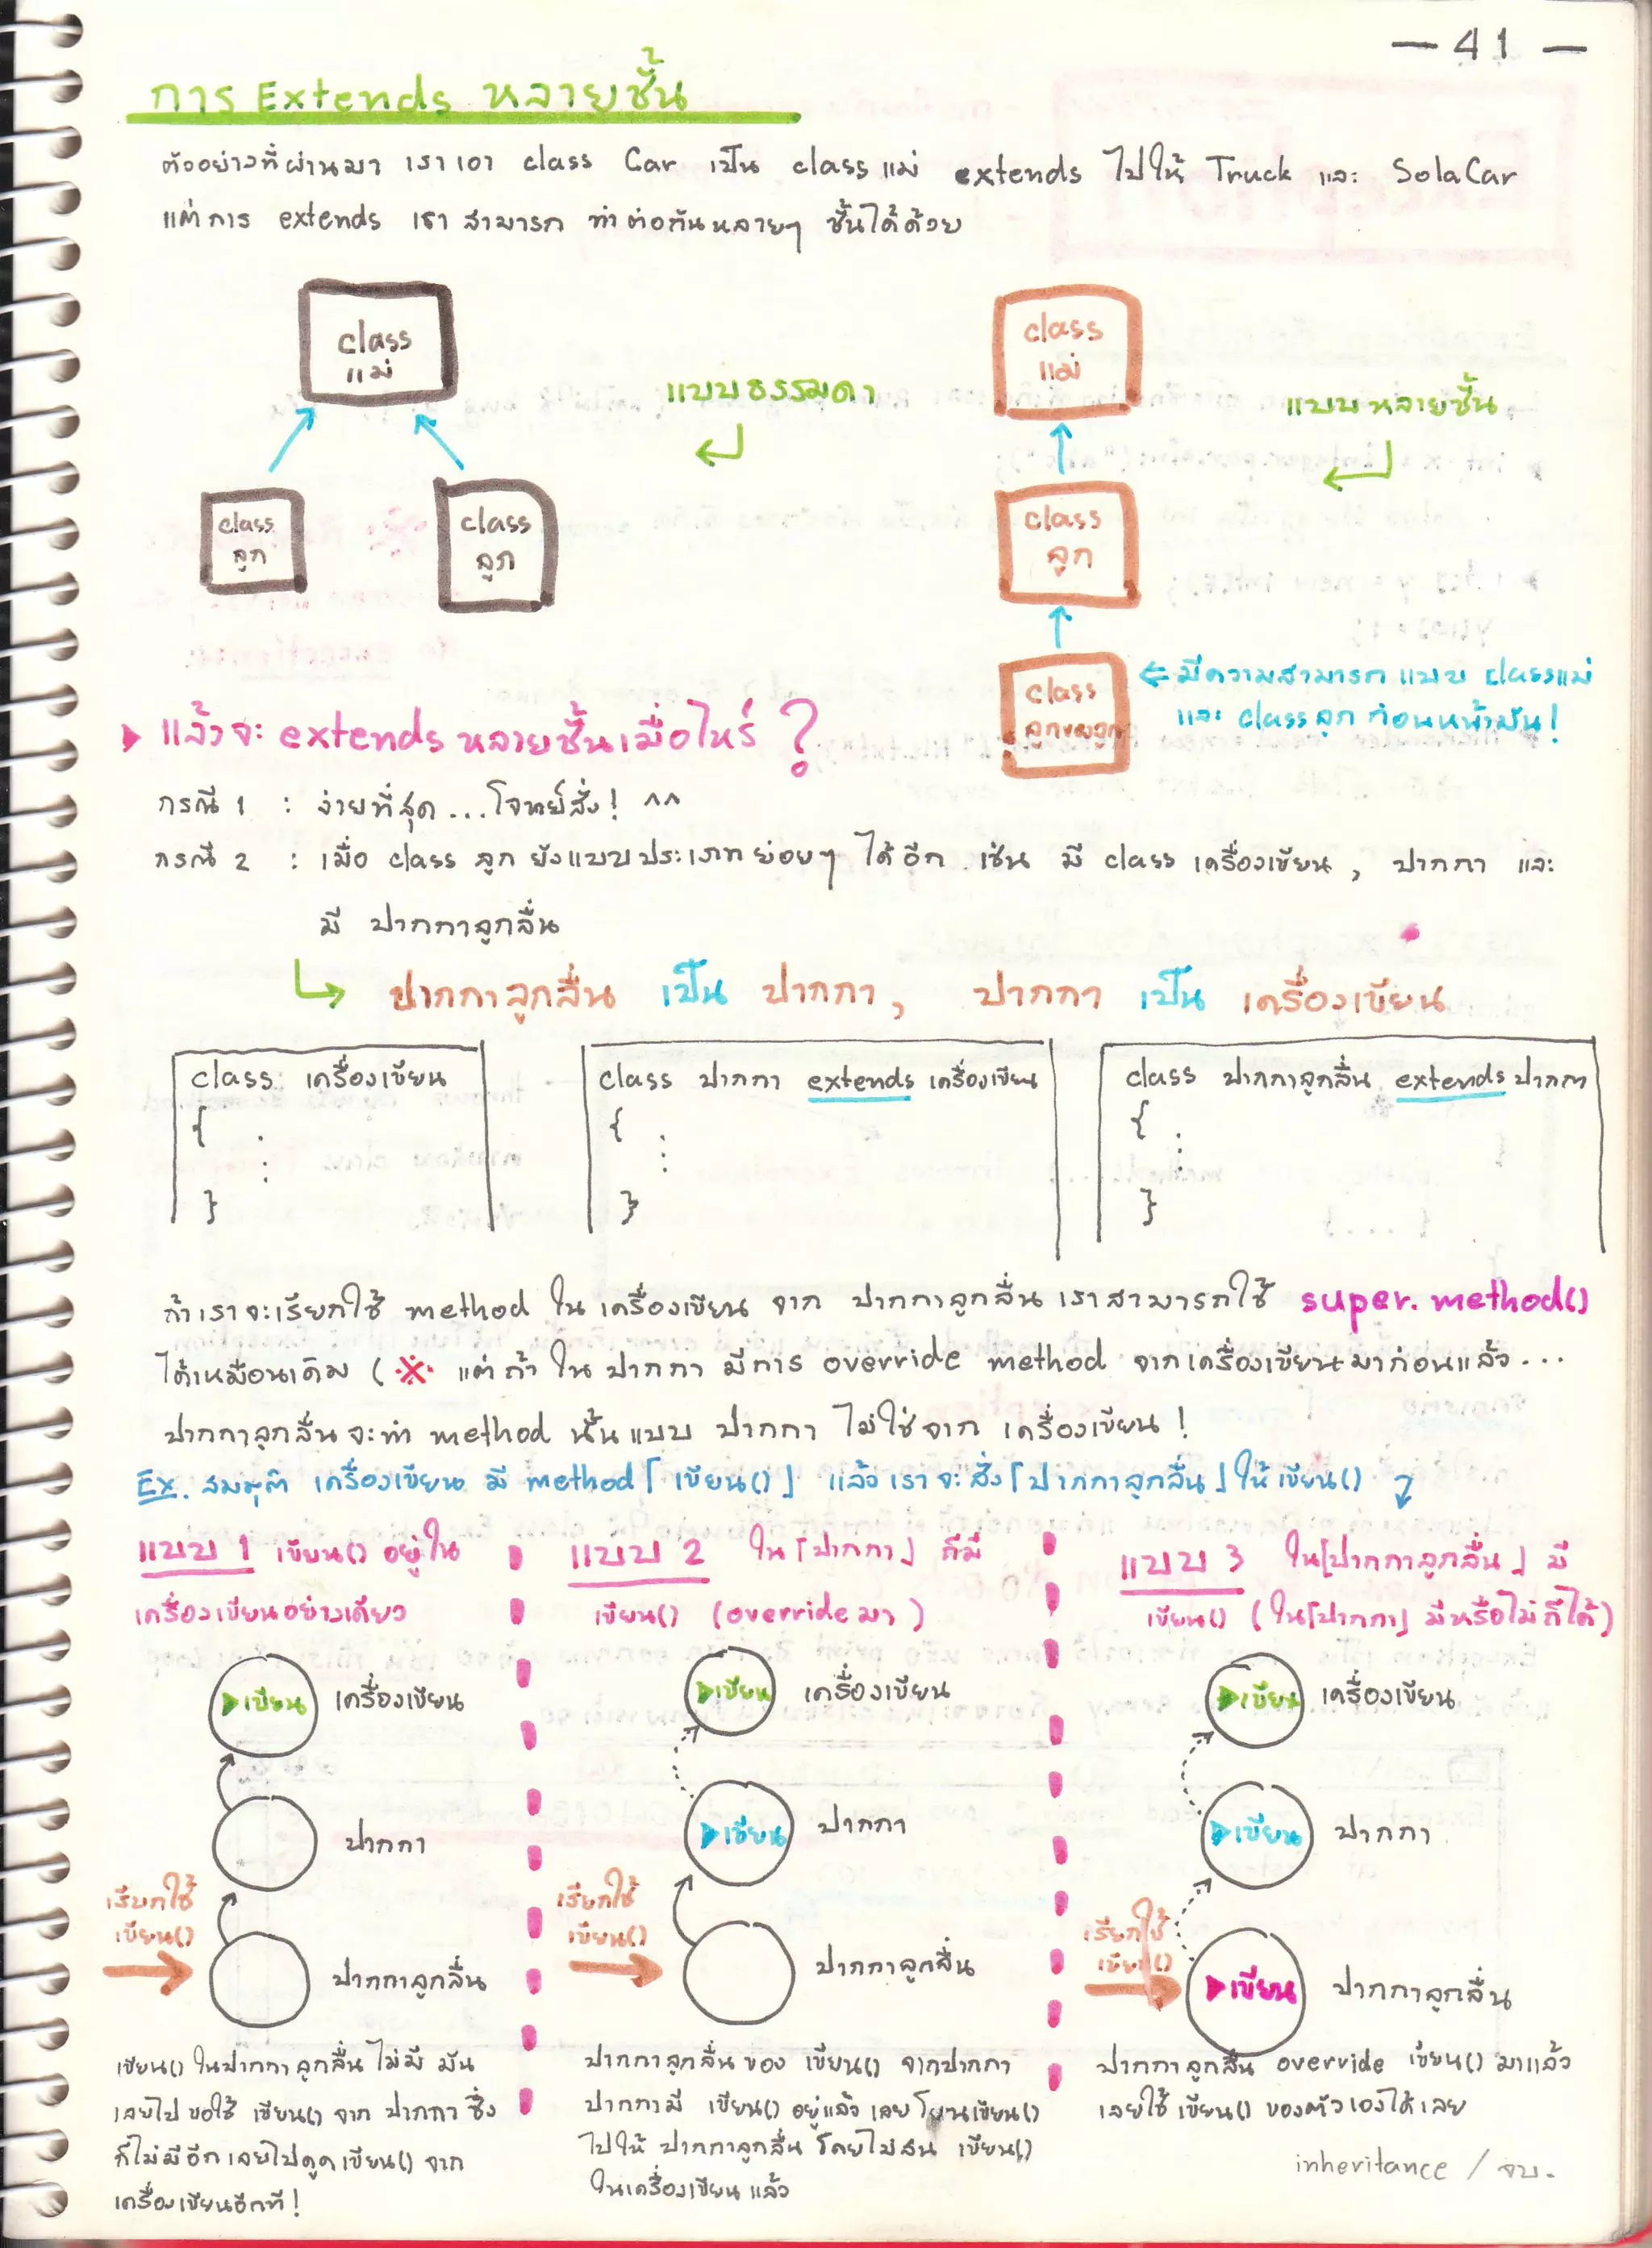 — 41 —
การ Extends หลายชั้น
ตัวอย่างที่ผ่านมา เราเอา class Car เป็น class แม่ extends ไปให้ Truck และ SolaCar
แต่การ extends เราสามารถ ทำต่อกันหลายๆ ชั้นได้ด้วย
class
แม่
class
ลูก
class
ลูก
แบบธรรมดา
class
แม่
class
ลูก
class
ลูกของลูก
แบบหลายชั้น
มีความสามารถ แบบ class แม่
และ class ลูก ก่อนหน้ามัน!
แล้วจะ extends หลายชั้นเมื่อไหร่ ?
กรณี 1 : ง่ายที่สุด...โจทย์สั่ง! ^^
กรณี 2 : เมื่อ class ลูก ยังแบบประเภทย่อยๆ ได้อีก เช่น มี class เครื่องเขียน, ปากกา และ
มี ปากกาลูกลื่น
ปากกาลูกลื่น เป็น ปากกา, ปากกา เป็น เครื่องเขียน
class เครื่องเขียน
{
:
}
class ปากกา extends เครื่องเขียน
{
:
}
class ปากกาลูกลื่น extends ปากกา
{
:
}
ถ้าเราจะเรียกใช้ method ใน เครื่องเขียน จาก ปากกาลูกลื่น เราสามารถใช้ super.method()
ได้เหมือนเดิม (※ แต่ถ้า ใน ปากกา มีการ override method จากเครื่องเขียนมาก่อนแล้ว...
ปากกาลูกลื่น จะทำ method นั้นแบบ ปากกา ไม่ใช่จาก เครื่องเขียน!
Ex. สมมุติ เครื่องเขียน มี method「เขียน()」 แล้วเราจะสั่ง「ปากกาลูกลื่น」ให้เขียน()
แบบ 1 เขียน() อยู่ใน
เครื่องเขียนอย่างเดียว
▶เขียน เครื่องเขียน
ปากกา
เรียกใช้
เขียน()
ปากกาลูกลื่น
เขียน() ในปากกาลูกลื่น ไม่มี มัน
เลยไป ขอใช้ เขียน() จาก ปากกา ซึ่ง
ก็ไม่มีอีก เลยไปดูดเขียน() จาก
เครื่องเขียนอีกที!
แบบ 2 ใน「ปากกา」ก็มี
เขียน() (override มา)
▶เขียน เครื่องเขียน
▶เขียน ปากกา
เรียกใช้
เขียน()
ปากกาลูกลื่น
ปากกาลูกลื่น ของ เขียน() จากปากกา
ปากกามี เขียน() อยู่แล้ว เลย โยนเขียน()
ไปให้ ปากกาลูกลื่น โดยไม่สน เขียน()
ในเครื่องเขียน แล้ว
แบบ 3 ใน「ปากกาลูกลื่น」มี
เขียน() (ใน「ปากกา」มีหรือไม่ก็ได้)
▶เขียน เครื่องเขียน
▶เขียน ปากกา
เรียกใช้
เขียน()
▶เขียน ปากกาลูกลื่น
ปากกาลูกลื่น override เขียน() มาแล้ว
เลยใช้ เขียน() ของตัวเองได้เลย
inheritance / จบ.